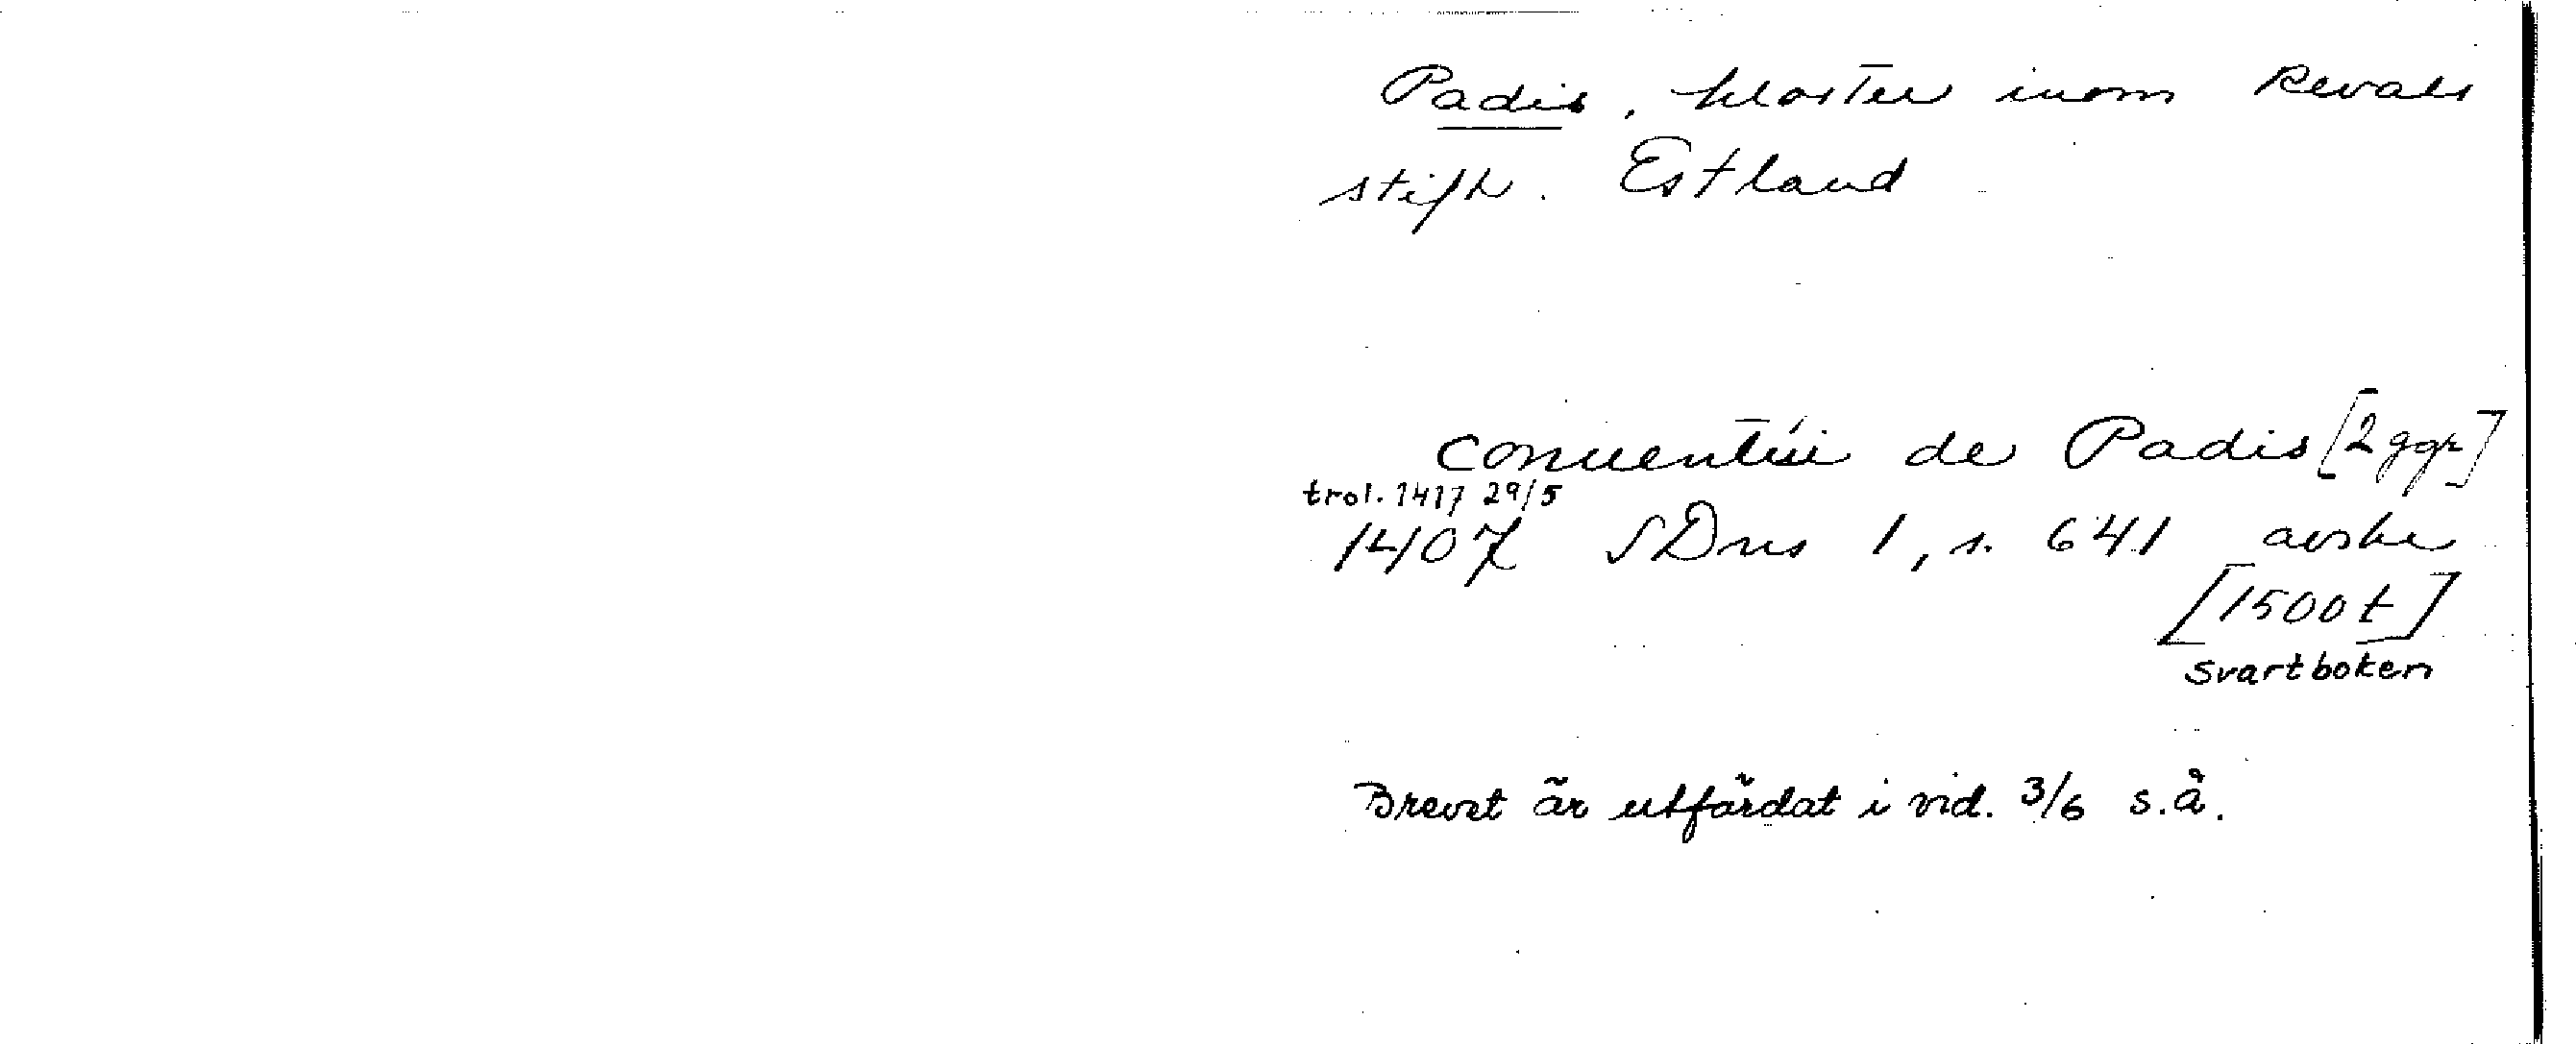 Padis, kloster inom Revals
stift. Estland
conuentui de Padis [2 ggr]
trol. 1417 29/5
1407 SDns 1, s. 641 avskr
[1500 t]
svartboken
Brevet är utfärdat i vid. 3/6 s.å.